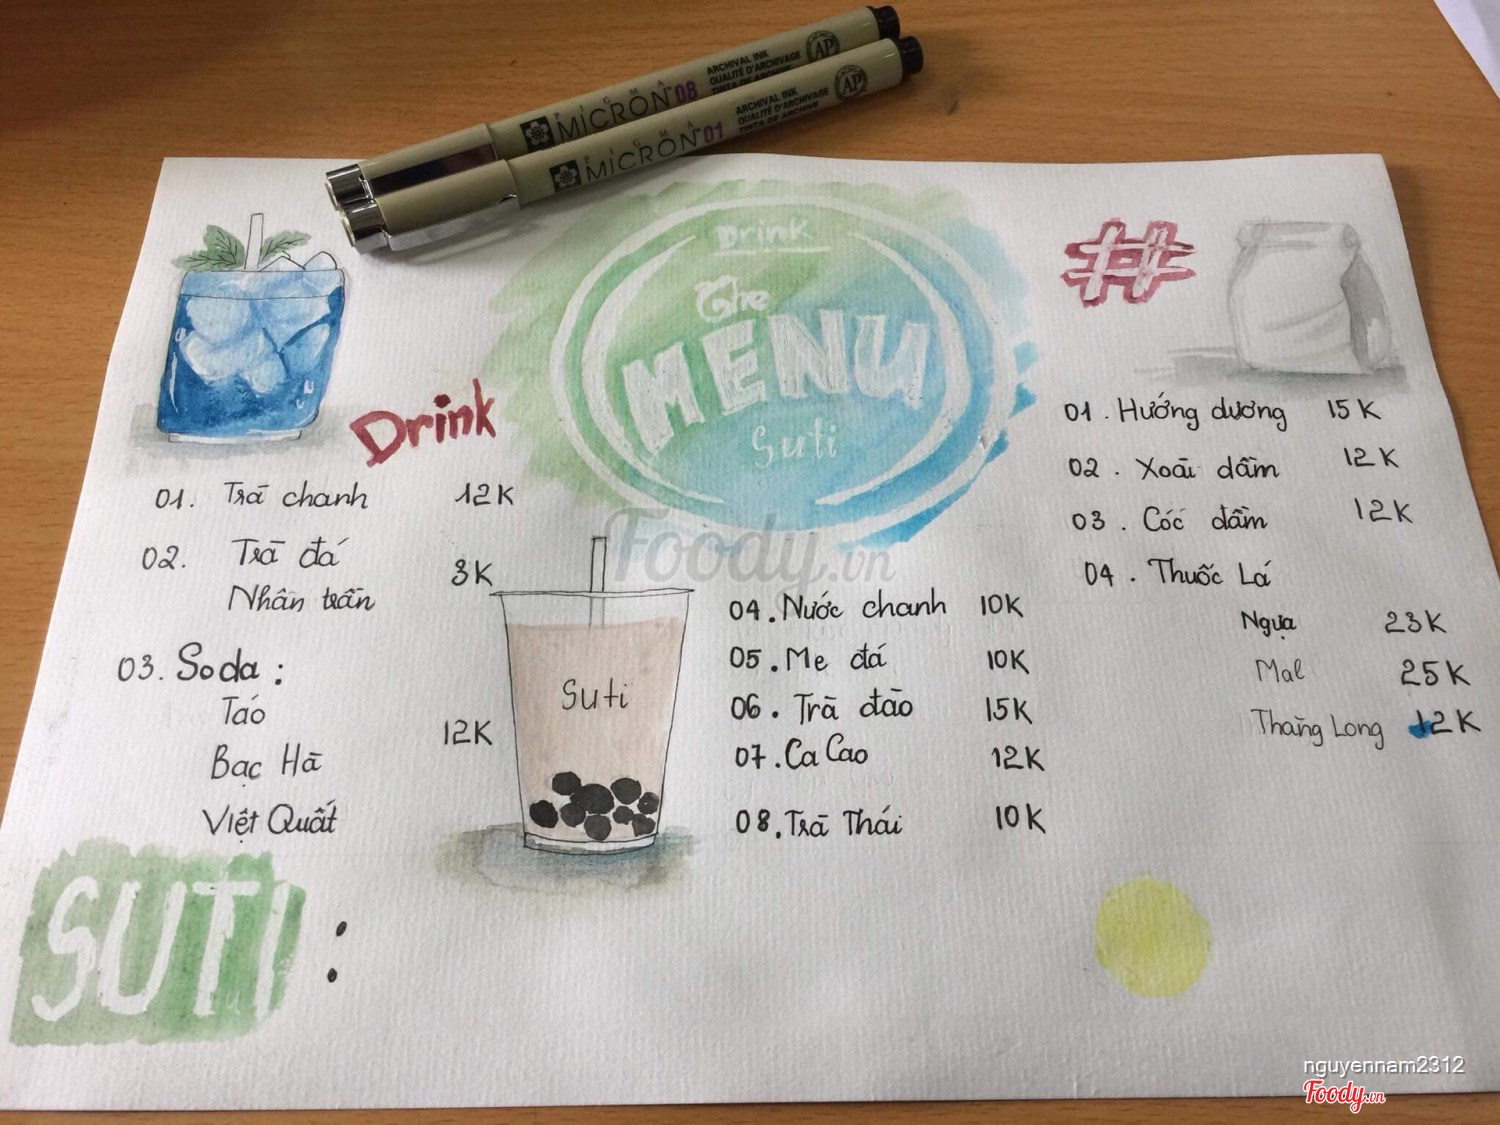 PIGMA
MICRON 08
ARCHIVAL INK
QUALITÉ D'ARCHIVAGE
TINTA DE ARCHIVE
AP
PIGMA
MICRON 01
ARCHIVAL INK
QUALITÉ D'ARCHIVAGE
TINTA DE ARCHIVE
AP
Drink
The
MENU
Suti
Drink
01. Trà chanh 12K
02. Trà đá
Nhân trần 3K
03. Soda:
Táo
Bạc Hà 12K
Việt Quất
Suti
04. Nước chanh 10K
05. Me đá 10K
06. Trà đào 15K
07. Ca Cao 12K
08. Trà Thái 10K
#
01. Hướng dương 15K
02. Xoài dầm 12K
03. Cóc dầm 12K
04. Thuốc Lá
Ngựa 23K
Mal 25K
Thăng Long 12K
SUTI :
Foody.vn
nguyennam2312
Foody.vn